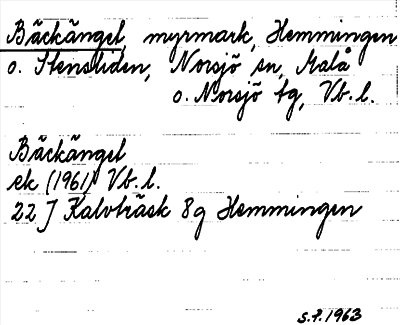 Bäckängel, myrmark, Hemmingen
o. Stensliden, Norsjö sn, Malå
o. Norsjö tg, Vb. l.
Bäckängel
ek (1961) Vb. l.
22 J Kalvträsk 8g Hemmingen
S.F. 1963